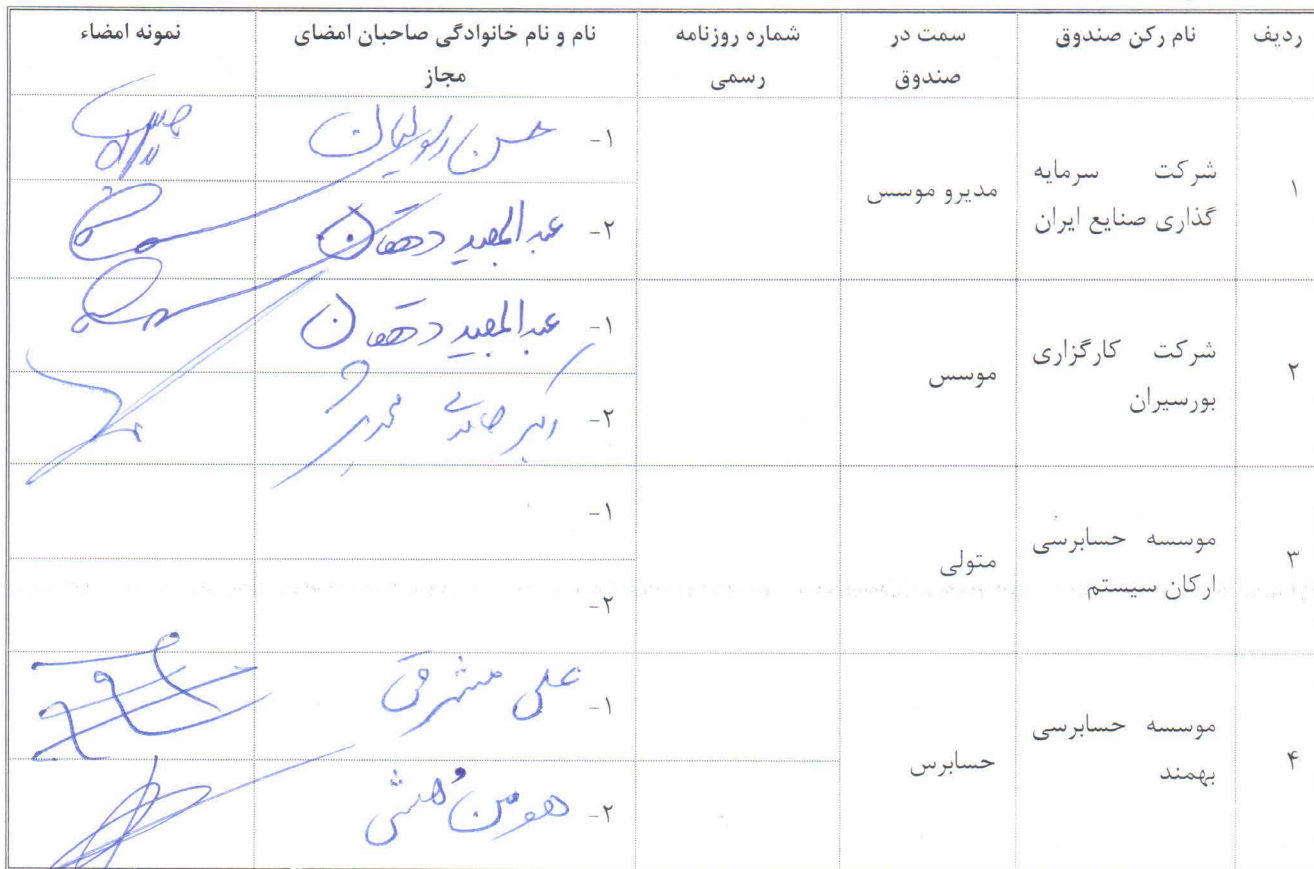 ردیف
نام رکن صندوق
سمت در
صندوق
شماره روزنامه
رسمی
نام و نام خانوادگی صاحبان امضای
مجاز
نمونه امضاء
۱
شرکت سرمایه
گذاری صنایع ایران
مدیرو موسس
۱- حسن
۲- عبدالمجید دهقان
۲
شرکت کارگزاری
بورسیران
موسس
۱- عبدالمجید دهقان
۲- اکبر
۳
موسسه حسابرسی
ارکان سیستم
متولی
۱-
۲-
۴
موسسه حسابرسی
بهمند
حسابرس
۱- علی مشرقی
۲- هومن هشی